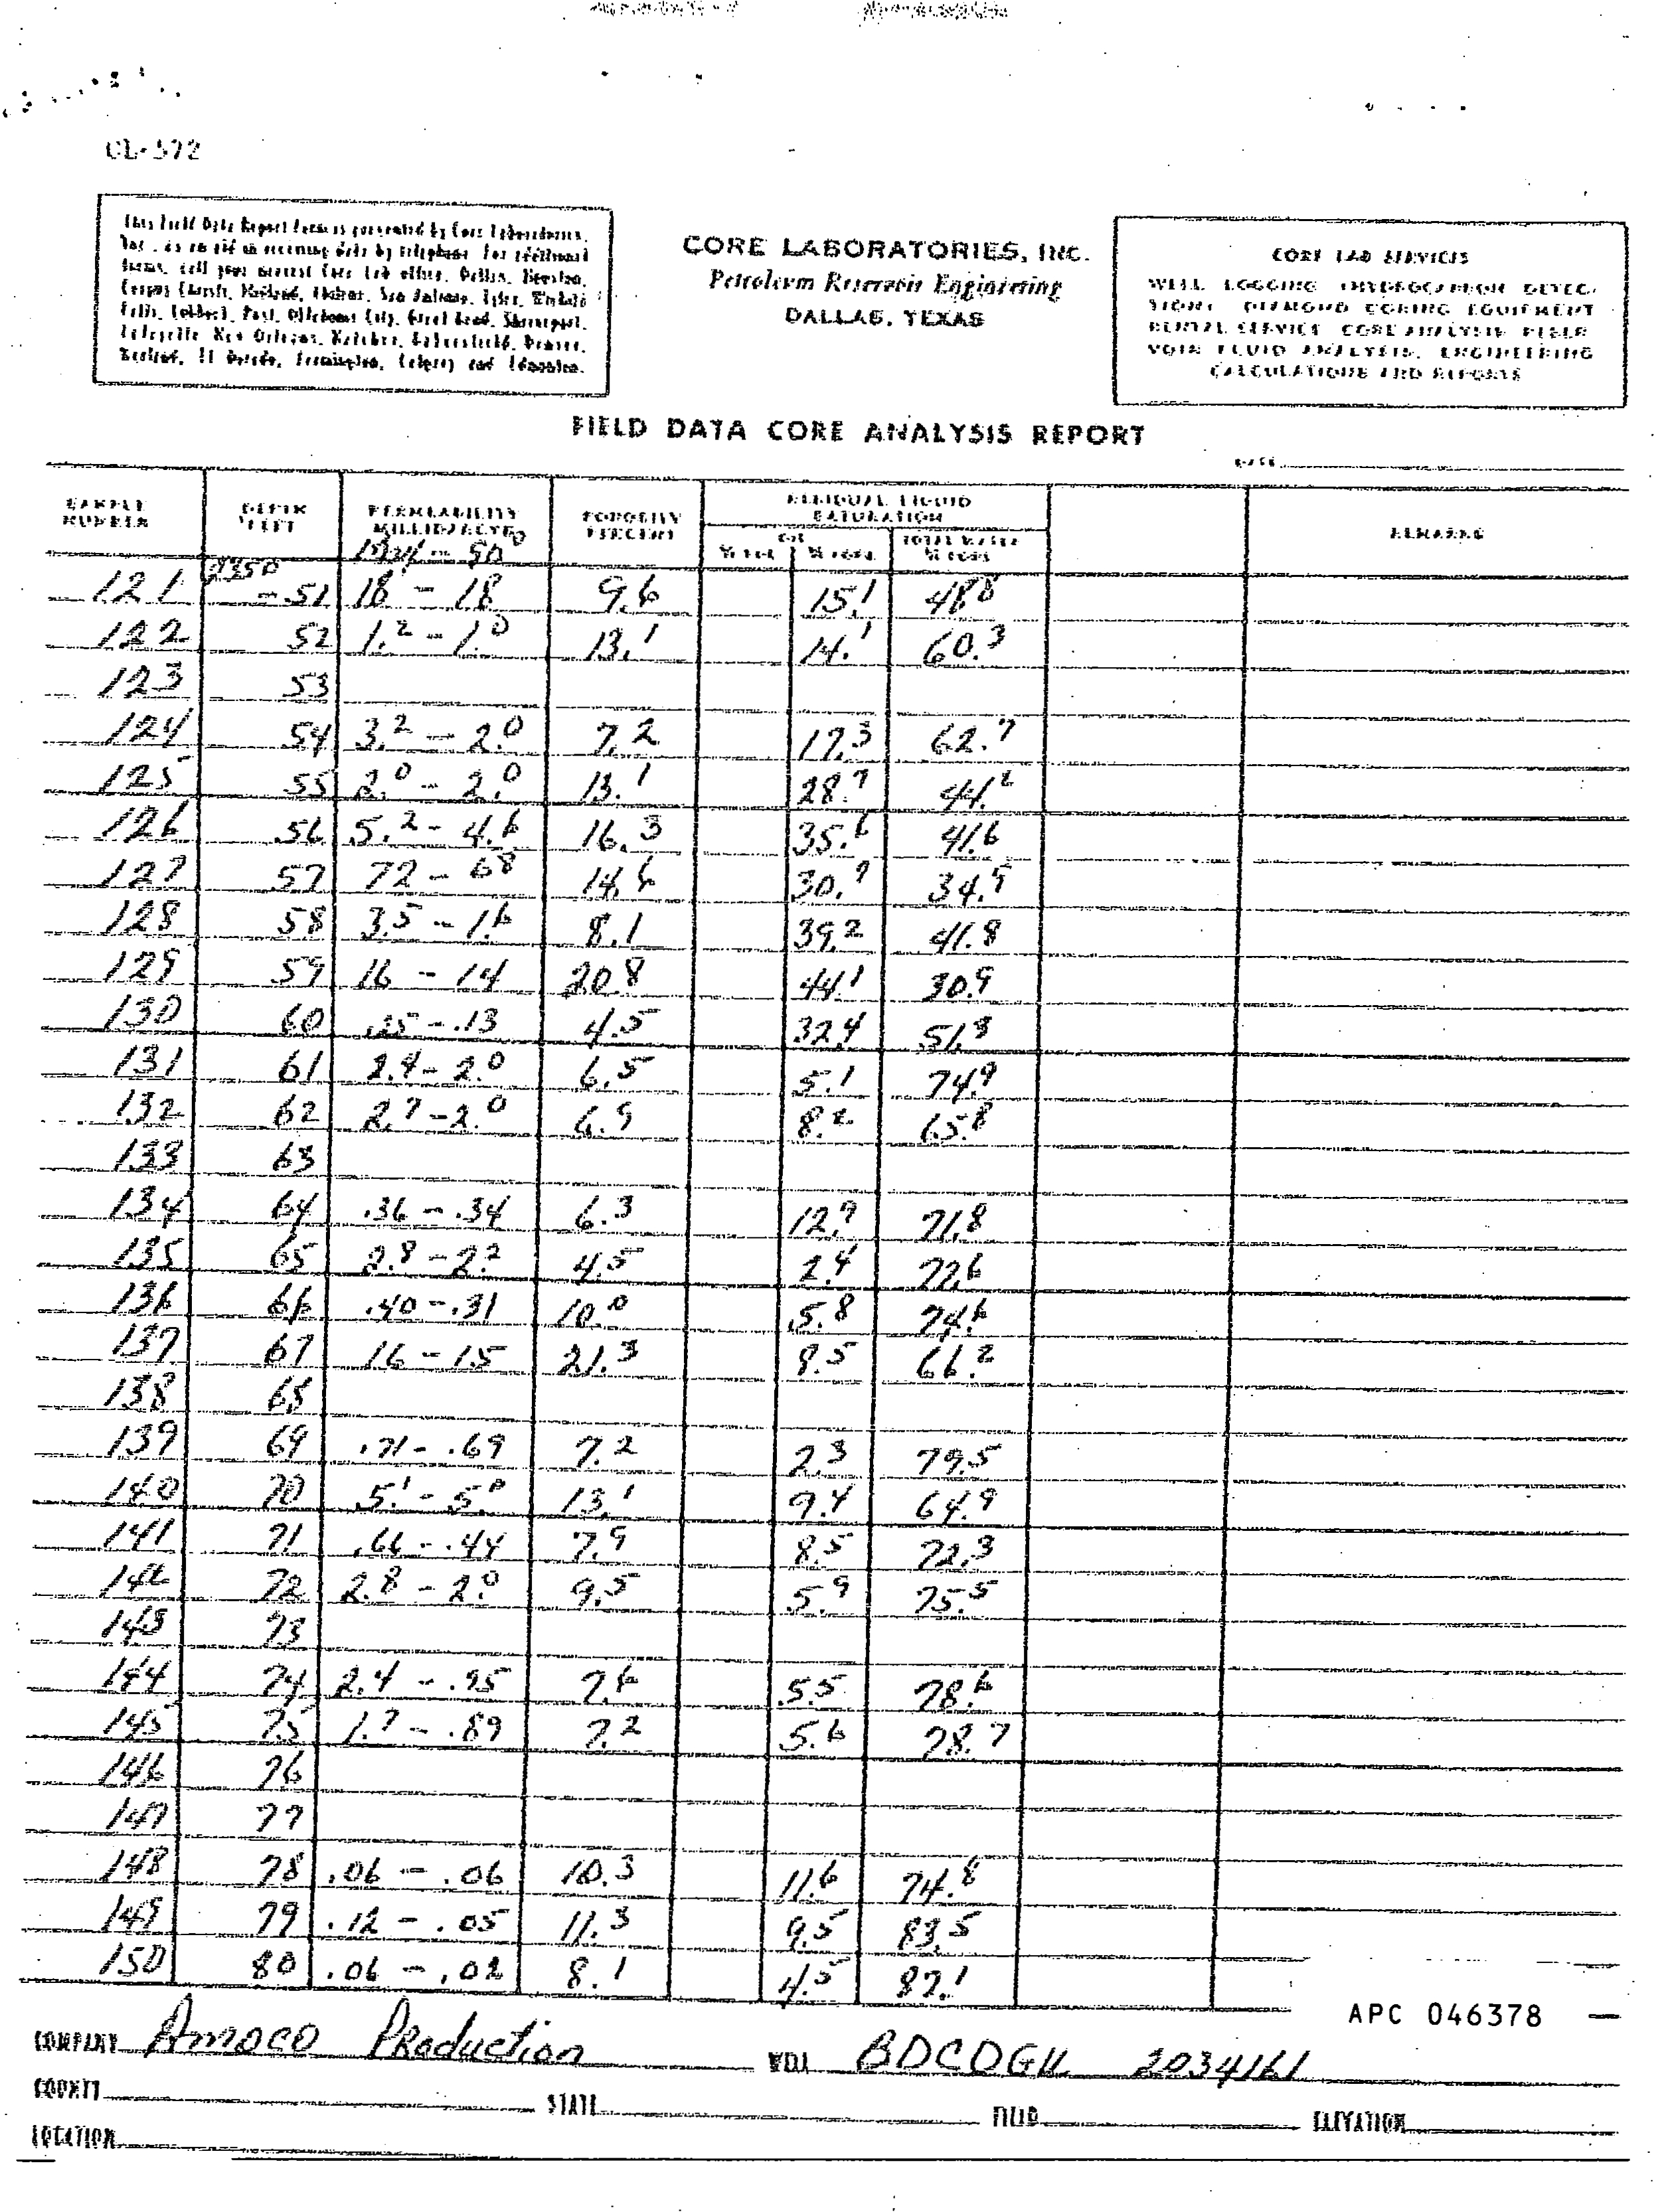 CL-572
This Field Data Report Form is presented by Core Laboratories,
Inc., as an aid in receiving data by telephone. For additional
forms, call your nearest Core Lab office, Dallas, Houston,
Corpus Christi, Midland, Hobbs, San Antonio, Tyler, Wichita
Falls, Lubbock, Post, Oklahoma City, Great Bend, Shreveport,
Lafayette, New Orleans, Natchez, Bakersfield, Denver,
El Dorado, Farmington, Calgary and Edmonton.
CORE LABORATORIES, INC.
Petroleum Reservoir Engineering
DALLAS, TEXAS
CORE LAB SERVICES
WELL LOGGING (HYDROCARBON DETEC-
TION) DIAMOND CORING EQUIPMENT
RENTAL SERVICE CORE ANALYSIS RESER-
VOIR FLUID ANALYSIS, ENGINEERING
CALCULATIONS AND REPORTS
FIELD DATA CORE ANALYSIS REPORT
DATE
SAMPLE NUMBER DEPTH FEET PERMEABILITY MILLIDARCYS POROSITY PERCENT RESIDUAL LIQUID SATURATION REMARKS
OIL % VOL. % PORE TOTAL WATER % PORE
Max - 90°
121 -51 18 - 18 9.6 15.1 48.8
122 52 1.2 - 1.0 13.1 14.1 60.3
123 53
124 54 3.2 - 2.0 7.2 17.3 62.7
125 55 2.0 - 2.0 13.1 28.7 44.2
126 56 5.2 - 4.6 16.3 35.6 41.6
127 57 72 - 68 14.6 30.9 34.9
128 58 3.5 - 1.6 8.1 39.2 41.8
129 59 16 - 14 20.8 44.1 30.9
130 60 .25 - .13 4.5 32.4 51.8
131 61 2.4 - 2.0 6.5 5.1 74.9
132 62 2.7 - 2.0 6.9 8.2 65.8
133 63
134 64 .36 - .34 6.3 12.9 71.8
135 65 2.8 - 2.2 4.5 2.4 72.6
136 66 .40 - .31 10.0 5.8 74.6
137 67 16 - 15 21.3 8.5 66.2
138 68
139 69 .71 - .69 7.2 2.3 79.5
140 70 5.1 - 5.0 13.1 9.4 64.9
141 71 .66 - .44 7.9 8.5 72.3
142 72 2.8 - 2.0 9.5 5.9 75.5
143 73
144 74 2.4 - .95 7.6 5.5 78.6
145 75 1.7 - .89 7.2 5.6 78.7
146 76
147 77
148 78 .06 - .06 10.3 11.6 74.8
149 79 .12 - .05 11.3 9.5 83.5
150 80 .06 - .02 8.1 4.5 87.1
APC 046378
COMPANY Amoco Production WELL BDCDGU 2034161
COUNTY STATE FIELD ELEVATION
LOCATION